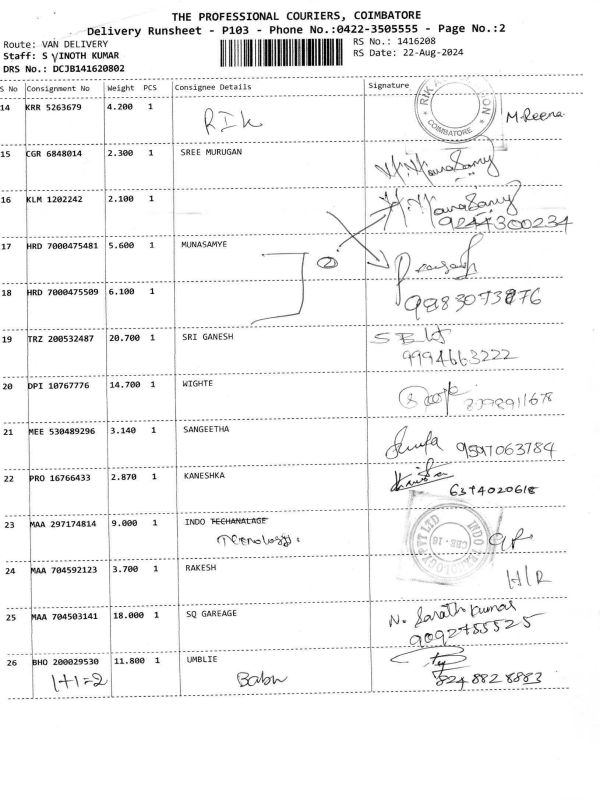 THE PROFESSIONAL COURIERS, COIMBATORE
Delivery Runsheet - P103 - Phone No.:0422-3505555 - Page No.:2
Route: VAN DELIVERY
RS No.: 1416208
Staff: S VINOTH KUMAR
RS Date: 22-Aug-2024
DRS No.: DCJB141620802
S No Consignment No Weight PCS Consignee Details Signature
14 KRR 5263679 4.200 1 RIK COIMBATORE M.Reena
15 CGR 6848014 2.300 1 SREE MURUGAN
16 KLM 1202242 2.100 1
9244300234
17 HRD 7000475481 5.600 1 MUNASAMYE
2
18 HRD 7000475509 6.100 1
19 TRZ 200532487 20.700 1 SRI GANESH
9994663222
20 DPI 10767776 14.700 1 WIGHTE
21 MEE 530489296 3.140 1 SANGEETHA 9597063784
22 PRO 16766433 2.870 1 KANESHKA
6374020618
23 MAA 297174814 9.000 1 INDO TECHANALAGE
24 MAA 704592123 3.700 1 RAKESH
H/R
25 MAA 704503141 18.000 1 SQ GAREAGE N. Sarath Kumar
9092455525
26 BHO 200029530 11.800 1 UMBLIE
1+1=2 Babu 8248828883